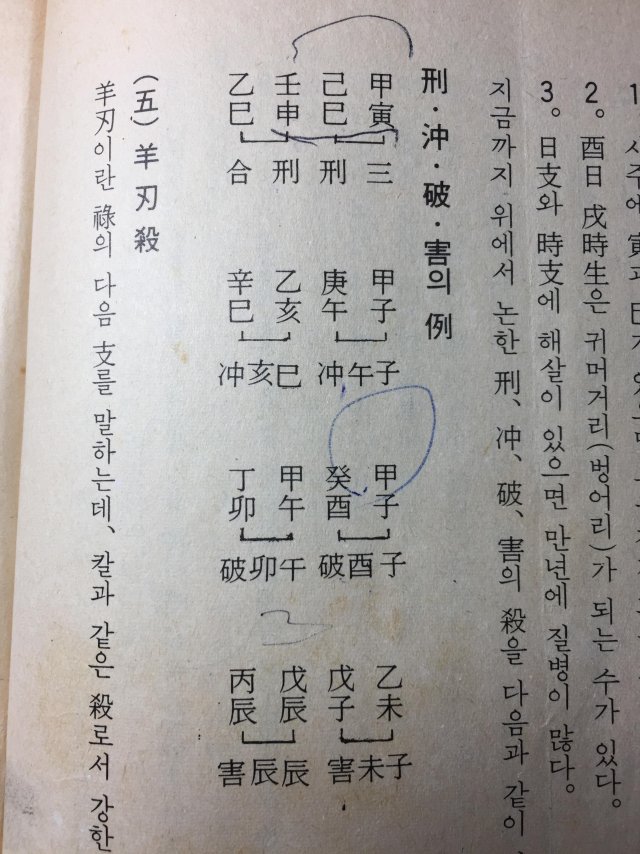 1 사주에 寅과 巳가
2。 酉日 戌時生은 귀머거리(벙어리)가 되는 수가 있다。
3。 日支와 時支에 해살이 있으면 만년에 질병이 많다。
지금까지 위에서 논한 刑、冲、破、害의 殺을 다음과 같이、
刑・沖・破・害의 例
甲寅 己巳 壬申 乙巳
三 刑 刑 合
甲子 庚午 乙亥 辛巳
子午冲 巳亥冲
甲子 癸酉 甲午 丁卯
子酉破 午卯破
乙未 戊子 戊辰 丙辰
子未害 辰辰害
(五) 羊刃殺
羊刃이란 祿의 다음 支를 말하는데、칼과 같은 殺로서 강한